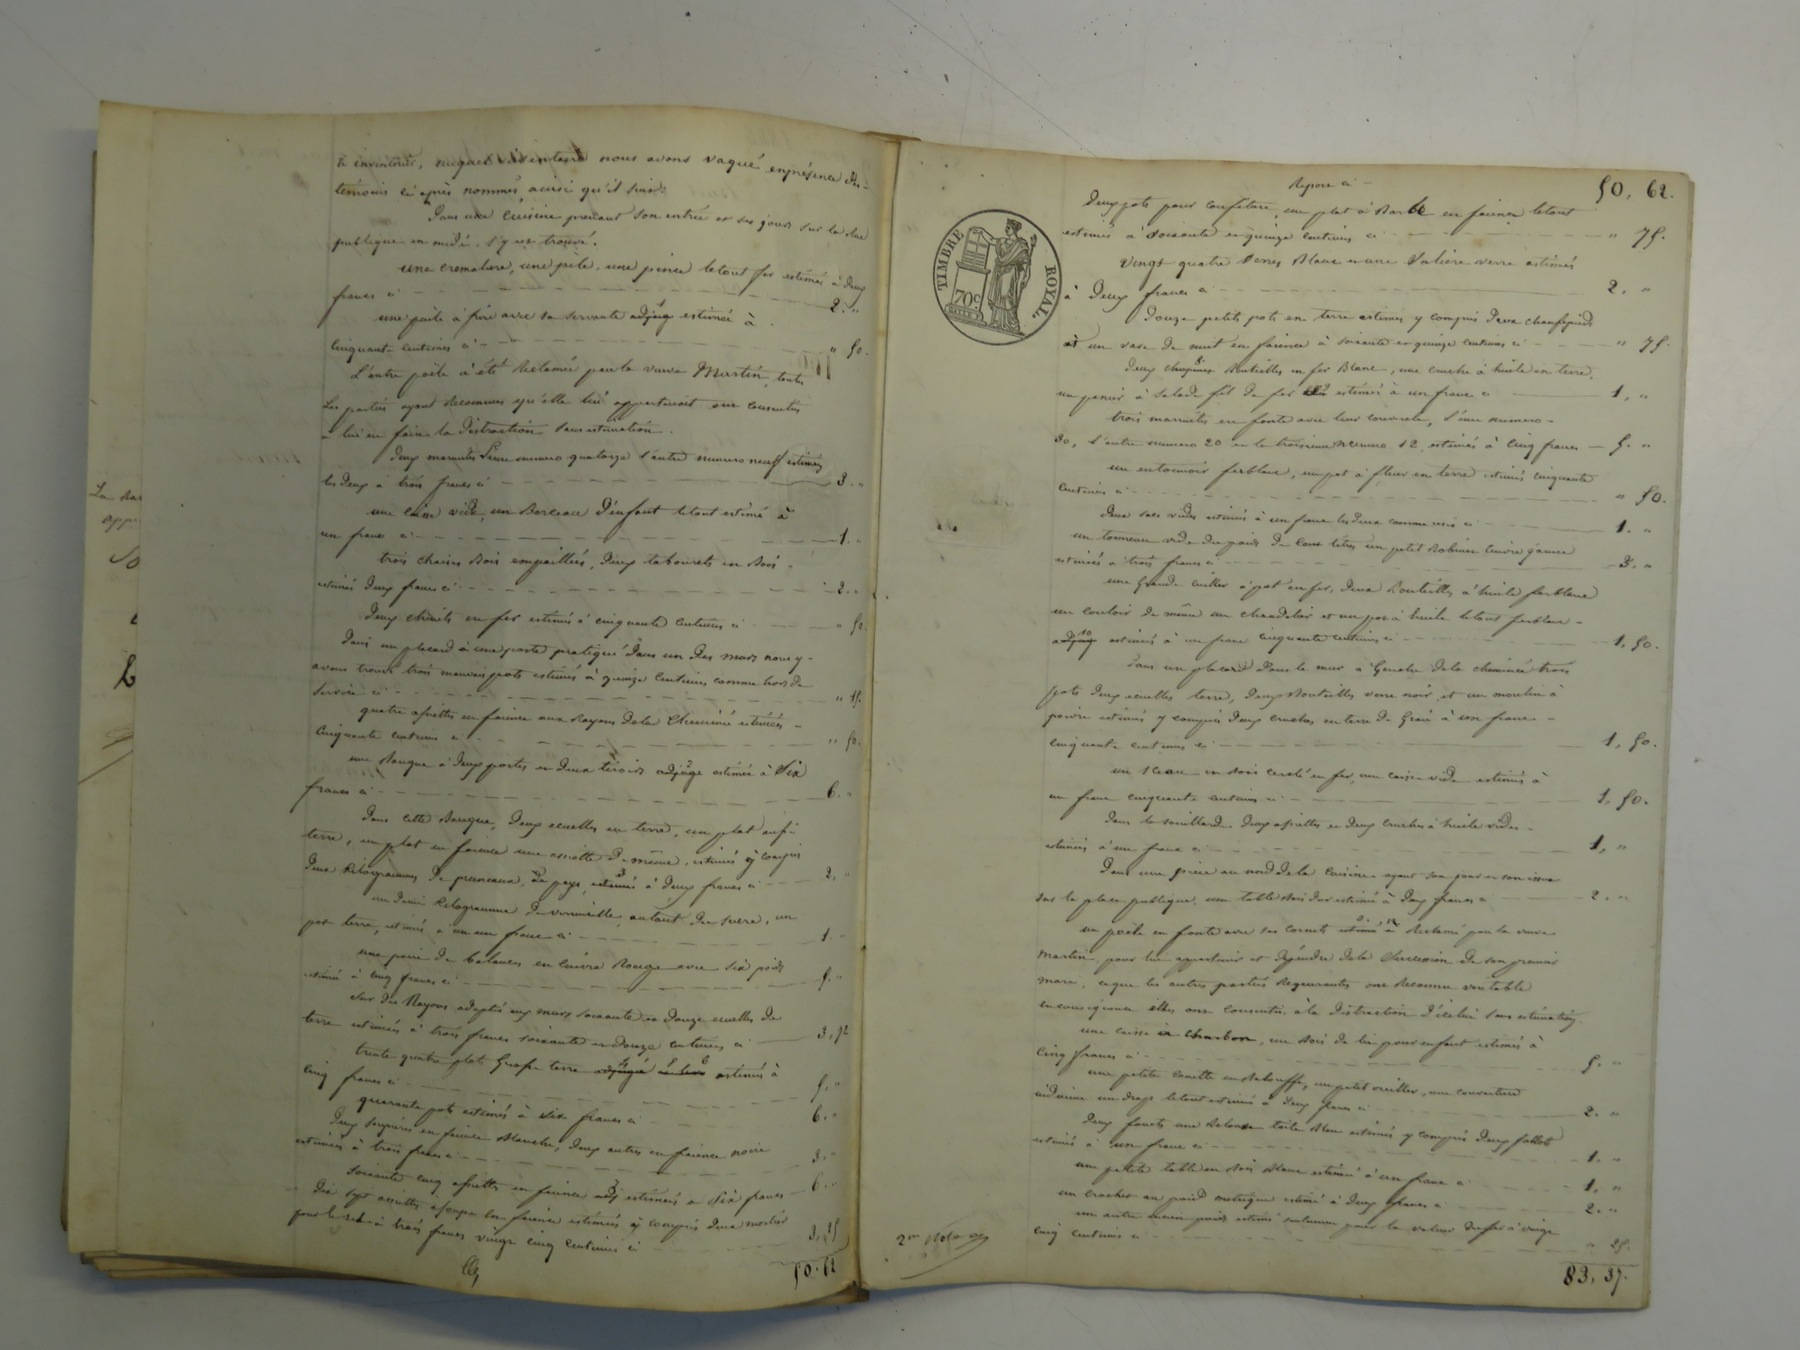 à inventorier, auquel inventaire nous avons vaqué en présence des
témoins ci après nommés, ainsi qu'il suit:
Dans une cuisine prenant son entrée et ses jours sur la rue
publique en midi, s'y est trouvé.
une cremaliere, une pèle, une pince le tout fer estimés à deux
francs ci 2. "
une poële à frire avec sa servante adjug estimée à
cinquante centimes ci " 50.
L'autre poële a été réclamée par la veuve Martin, toutes
les parties ayant reconnues qu'elle lui appartenait ont consenties
à lui en faire la distraction sans estimation.
deux marmites l'une numero quatorze l'autre numero neuf estimées
les deux à trois francs ci 3. "
une caisse vide, un Berceau d'enfant le tout estimé à
un franc ci 1. "
trois chaises bois empaillées, deux tabourets en bois
estimés deux francs ci 2. "
deux chenets en fer estimés à cinquante centimes ci " 50.
Dans un placard à une porte pratiqué dans un des murs nous y
avons trouvé trois mauvais pots estimés à quinze centimes comme hors de
service ci " 15.
quatre assiettes en faience aux rayons de la cheminée estimées
cinquante centimes ci " 50.
une Banque à deux portes et deux tiroirs adjuge estimée à six
francs ci 6. "
Dans cette Banque, deux ecuelles en terre, un plat aussi
terre, un plat en faience une assiette de même, estimés y compris
deux kilogrammes de pruneaux de pays, estimés à deux francs ci 2, "
un demi kilogramme de vermicelle, autant de sucre, un
pot terre, estimés à un franc ci 1. "
une paire de balances en cuivre rouge avec six poids
estimée à cinq francs ci 5. "
sur des rayons adaptés aux murs soixante et douze ecuelles de
terre estimées à trois francs soixante et douze centimes ci 3, 72
trente quatre plats terre estimés à
cinq francs ci 5. "
quarante pots estimés à six francs ci 6. "
Deux soupières en faience Blanche, deux autres en faience noire
estimées à trois francs ci 3. "
soixante cinq assiettes en faience estimées à six francs 6. "
dix sept assiettes à soupe en faience estimées y compris deux mortier
pour le sel à trois francs vingt cinq centimes ci 3, 25
50. 62
La
Report ci 50, 62.
TIMBRE ROYAL.
70c
Deux pots pour confiture, un plat à Barbe en faience le tout
estimés à soixante et quinze centimes ci " 75.
vingt quatre verres Blanc et une salière verre estimés
à deux francs ci 2. "
Douze petits pots en terre estimés y compris deux chaufepieds
et un vase de nuit en faience à soixante et quinze centimes ci " 75.
Deux Bouteilles en fer Blanc, une cruche à huile en terre,
un panier à salade fil de fer estimés à un franc ci 1, "
trois marmites en fonte avec leur couvercle, l'une numero
30, l'autre numero 20 et la troisieme numero 12 estimés à cinq francs 5. "
un entonnoir ferblanc, un pot à fleur en terre estimés cinquante
centimes ci " 50.
Deux sacs vides estimés à un franc les deux ci 1. "
un tonneau vide un petit Robinet cuivre jaune
estimés à trois francs ci 3. "
une Grande cuiller à pot en fer, deux Bouteilles à huile ferblanc
un couloir de même un chandelier et un pot à huile le tout ferblanc
estimés à un franc cinquante centimes ci 1, 50.
Dans un placard dans le mur à Gauche de la cheminée trois
pots deux ecuelles terre, deux Bouteilles verre noir, et un moulin à
poivre estimés y compris deux cruches en terre de Grès à un franc
cinquante centimes ci 1, 50.
un sceau en bois cerclé en fer, une caisse vide estimés à
un franc cinquante centimes ci 1, 50.
Dans la souillarde deux assiettes et deux cruches à huile vides
estimées à un franc ci 1, "
Dans une pièce au nord de la cuisine ayant son jour et son issue
sur la place publique, une table bois dur estimée à deux francs ci 2. "
un poële en fonte avec ses cornets réclamé par la veuve
Martin, pour lui appartenir et dépendre de la succession de son premier
mari, ce que les autres parties requerantes ont reconnu véritable
en conséquence elles ont consenties à la distraction d'icelui sans estimation.
une caisse à charbon, un bois de lit pour enfant estimés à
cinq francs ci 5. "
une petite couette en Balouffe, un petit oreiller, une couverture
un drap le tout estimés à deux francs ci 2. "
Deux toile bleue estimés y compris deux
estimés à un franc ci 1. "
une petite table en bois Blanc estimée à un franc ci 1, "
un crochet au poid metrique estimé à deux francs ci 2. "
un autre ancien poids estimé seulement pour la valeur du fer à vingt
cinq centimes ci " 25.
83, 37.
2me Role